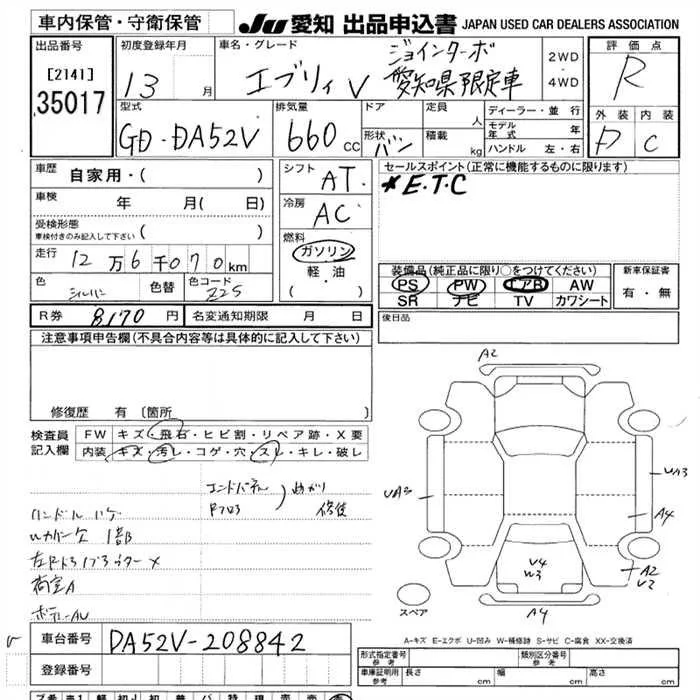 車内保管・守衛保管
JU 愛知 出品申込書 JAPAN USED CAR DEALERS ASSOCIATION
出品番号
[2141]
35017
初度登録年月
13 月
車名・グレード
エブリィ V
ジョインターボ
愛知県限定車
2WD
4WD
評価点
R
型式
GD・DA52V
排気量
660 cc
ドア
形状 バン
定員 人
積載 kg
ディーラー・並行
モデル年式 年
ハンドル 左・右
外装 内装
D C
車歴 自家用・( )
車検 年 月( 日)
受検形態
車検付きのみ記入して下さい
走行 12万6千070km
色 シルバー 色替 色コード Z2S
R券 8170 円 名変通知期限 月 日
シフト
AT
冷房
AC
燃料
ガソリン
軽・油
・( )
セールスポイント(正常に機能するものに限ります)
*E.T.C
装備品(純正品に限り○をつけてください)
PS PW エアB AW
SR ナビ TV カワシート
新車保証書
有・無
後日品
注意事項申告欄(不具合内容等は具体的に記入して下さい)
修復歴 有 〔箇所 〕
検査員記入欄
FW キズ・飛石・ヒビ割・リペア跡・X要
内装 キズ・汚レ・コゲ・穴・スレ・キレ・破レ
ハンドル ハゲ
1部
荷室A
修復
A2
UA3
UA3
A4
A2
U2
U4
W3
A4
スペア
A-キズ E-エクボ U-凹み W-補修跡 S-サビ C-腐食 XX-交換済
車台番号 DA52V-208842
登録番号
形式指定番号 参考
類別区分番号 参考
車庫証明用 参考 長さ cm 幅 cm 高さ cm